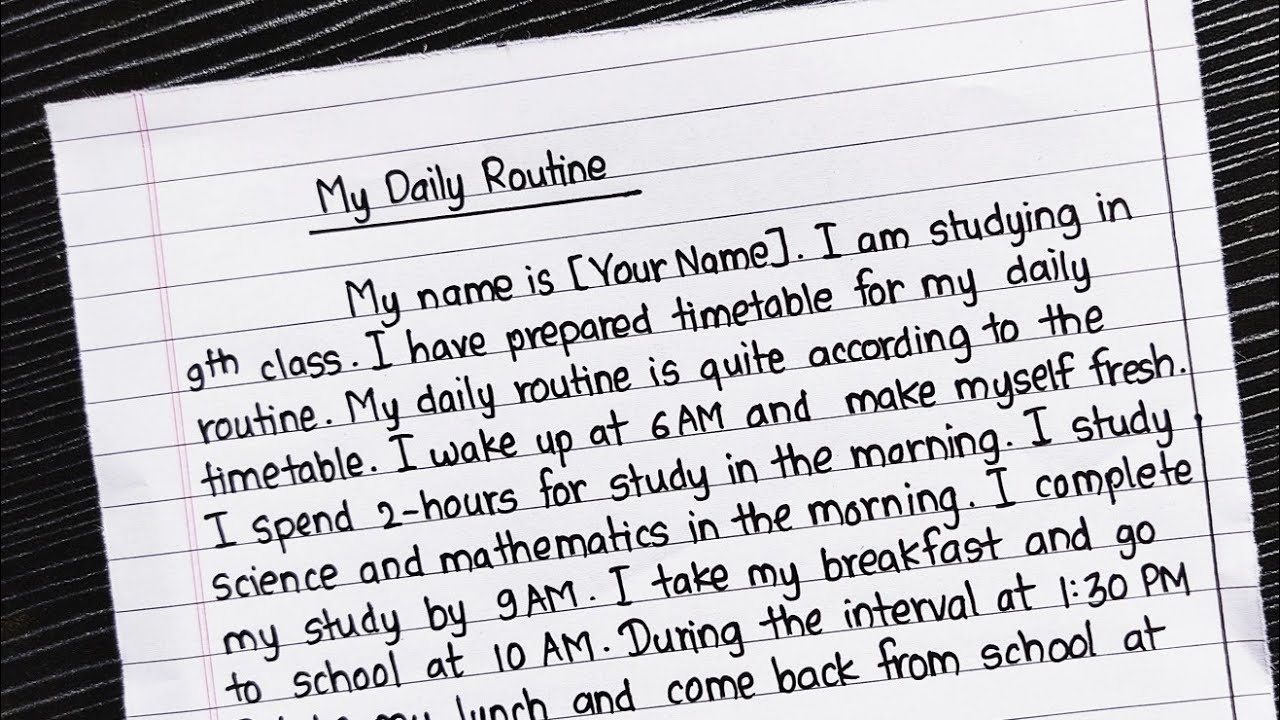 My Daily Routine
My name is [Your Name]. I am studying in
9th class. I have prepared timetable for my daily
routine. My daily routine is quite according to the
timetable. I wake up at 6 AM and make myself fresh.
I spend 2-hours for study in the morning. I study
science and mathematics in the morning. I complete
my study by 9 AM. I take my breakfast and go
to school at 10 AM. During the interval at 1:30 PM
my lunch and come back from school at